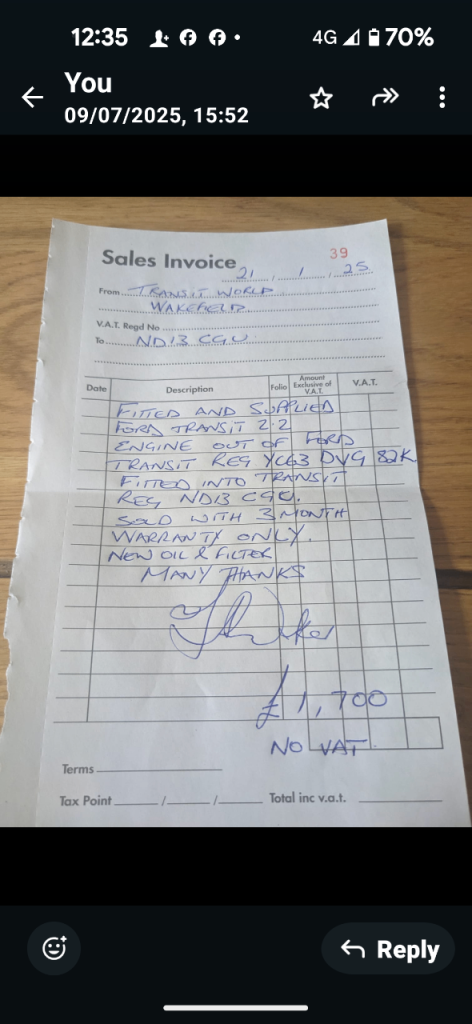 12:35
4G 70%
You
09/07/2025, 15:52
39
Sales Invoice 21 / 1 / 25
From TRANSIT WORLD
WAKEFIELD.
V.A.T. Regd No
To ND13 CGU.
Date Description Folio Amount Exclusive of V.A.T. V.A.T.
FITTED AND SUPPLIED
FORD TRANSIT 2.2
ENGINE OUT OF FORD
TRANSIT REG YC63 DVG 82K
FITTED INTO TRANSIT
REG ND13 CGU.
SOLD WITH 3 MONTH
WARRANTY ONLY.
NEW OIL & FILTER
MANY THANKS
£1,700
NO VAT.
Terms
Tax Point / /
Total inc v.a.t.
Reply